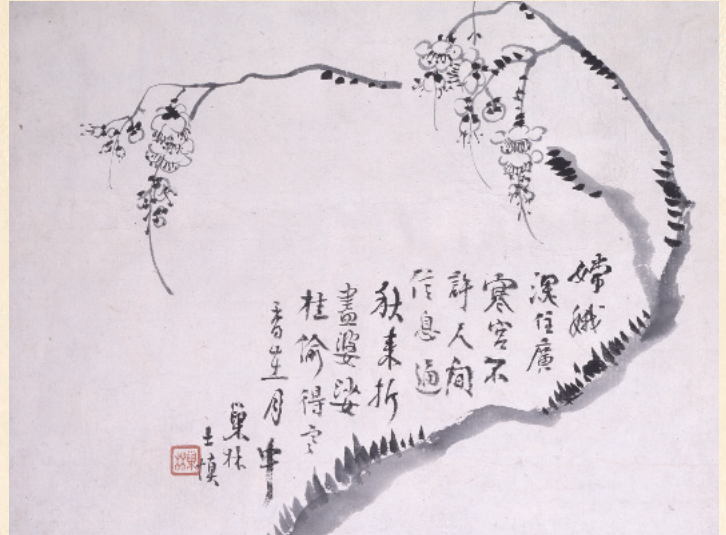 嫦娥
深住廣
寒宮不
許人間
信息通
秋來折
盡婆娑
桂偷得天
香在月中
巢林
士慎